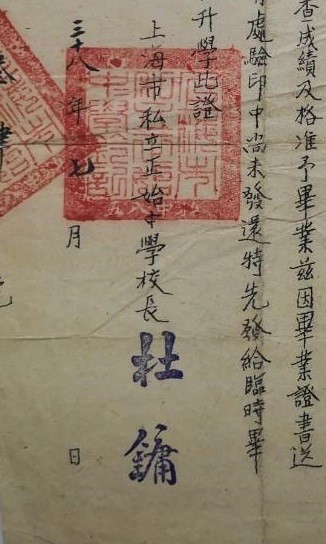 查成績及格准予畢業茲因畢業證書送
處驗印中尚未發還特先發給臨時畢
升學此證
上海市私立正始中學校長 杜鏞
三十八年七月 日